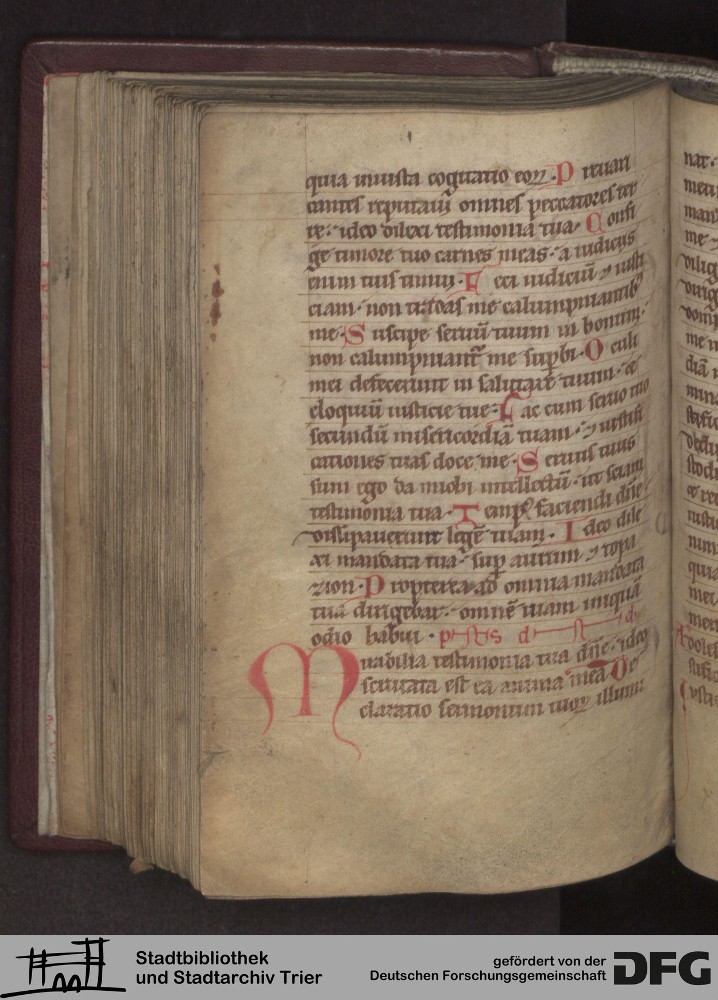 quia iniusta cogitatio eoꝝ. P reuari
cantes reputaui omnes peccatores ter
re. ideo dilexi testimonia tua. C onfi
ge timore tuo carnes meas. a iudiciis
enim tuis timui. F eci iudiciū ⁊ iusti
ciam. non tradas me calumpniantib;
me. S uscipe seruū tuum in bonum.
non calumpniant̄ me sup̄bi. O culi
mei defecerunt in salutare tuum. ⁊ ī
eloquiū iusticie tue. F ac cum seruo tuo
secundū misericordiā tuam. ⁊ iustifi
cationes tuas doce me. S eruus tuus
sum ego da michi intellectū. ut sciam
testimonia tua. T emp᷒ faciendi dn̄e
dissipauerunt legē tuam. I deo dile
xi mandata tua. sup̄ aurum ⁊ topa
zion. P ropterea ad omnia mandata
tua dirigebar. omnē uiam iniquā
odio habui.
M irabilia testimonia tua dn̄e. ideo
scrutata est ea anima mea D e
claratio sermonum tuoꝝ illumi
nat.
Stadtbibliothek
und Stadtarchiv Trier
gefördert von der
Deutschen Forschungsgemeinschaft
DFG